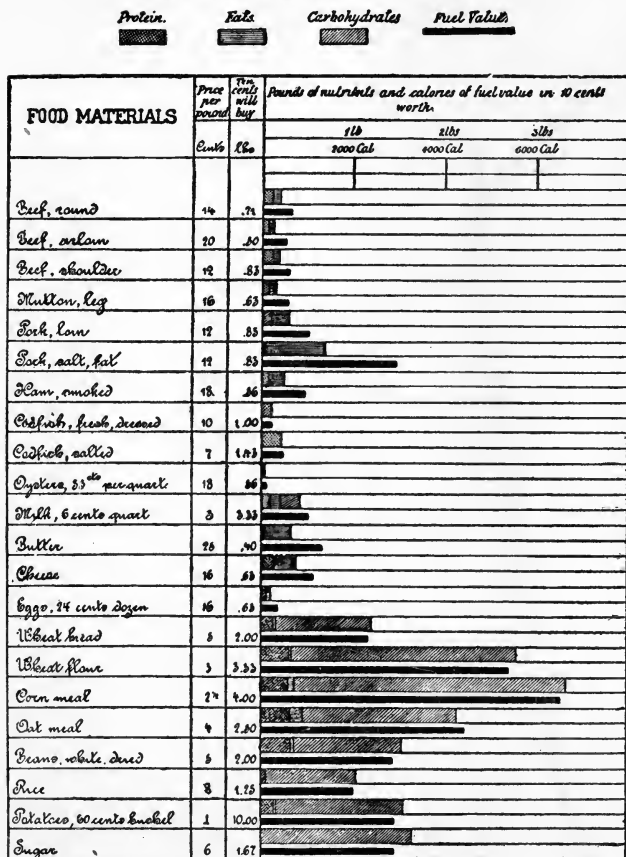 Protein. Fats Carbohydrates Fuel Values
FOOD MATERIALS
Price per pound
Ten cents will buy
Pounds of nutrients and calories of fuel value in 10 cents
worth.
1 lb 2 lbs 3 lbs
Cents lbs 2000 Cal 4000 Cal 6000 Cal
Beef, round 14
Beef, sirloin 20 .50
Beef, shoulder 12 .83
Mutton, leg 16 .63
Pork, loin 12 .83
Pork, salt, fat 12 .83
Ham, smoked 18 .56
Codfish, fresh, dressed 10 1.00
Codfish, salted 7 1.43
Oysters, 35 cts per quart 18 .56
Milk, 6 cents quart 3 3.33
Butter 25 .40
Cheese 16 .63
Eggs, 24 cents dozen 16 .63
Wheat bread 5 2.00
Wheat flour 3 3.33
Corn meal 2½ 4.00
Oat meal 4 2.50
Beans, white, dried 5 2.00
Rice 8 1.25
Potatoes, 60 cents bushel 1 10.00
Sugar 6 1.67